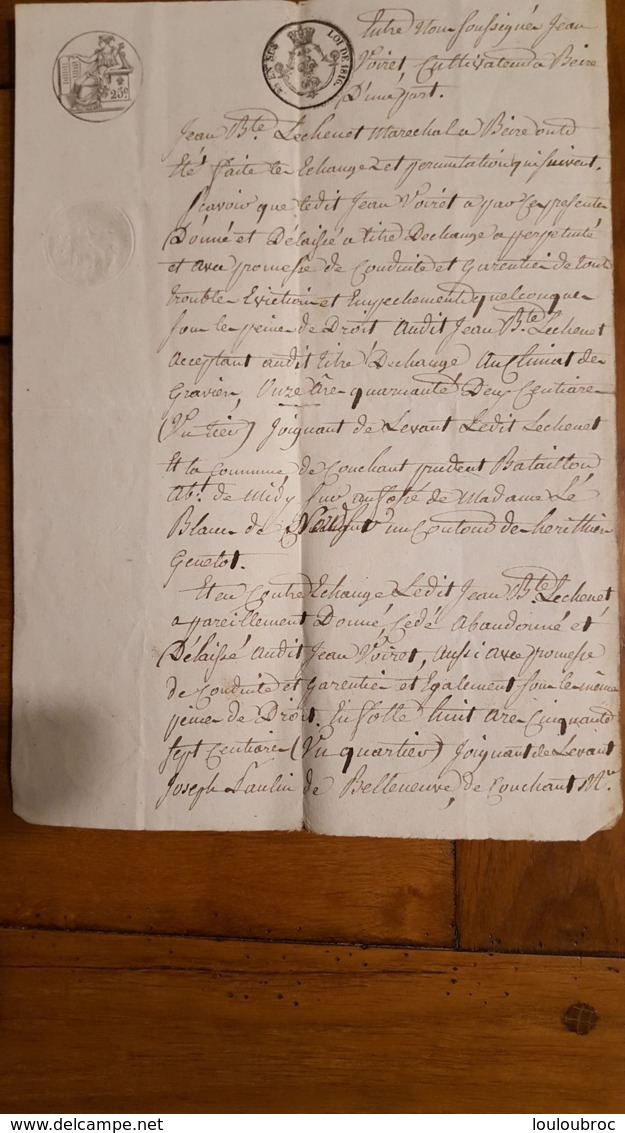 25c
EN SUS
LOI DE 1816.
Entre Nous soussignés Jean
Voiret, Cultivateur a Beire
D'une part.
Jean Bte. Lechenet Marechal a Beire ont
Eté faite les Echange et permutation qui suivent.
Scavoir que ledit Jean Voirét a par Ce presente
Donné et Délaissé a titre Dechange a perpetuité
et avec promesse de Conduite et Garentier de tout
trouble Eviction et Empechement quelconque
sous les peine de Droit audit Jean Bte. Lechenet
Acceptant audit titre Dechange Au Climat de
Gravier, Onze are quarante Deux Centiare
(Un tier) Joignant de Levant Ledit Lechenet
Et la Commune de Couchant prudent Bataillon
Abt. de Midy sur un fossé de Madame Le
Blanc de un de
Genelot.
Et en Contre Echange Ledit Jean Bte. Lechenet
a pareillement Donné, Cédé Abandonné et
Délaissé audit Jean Voiret, Aussi Avec promesse
de Conduite et Garentier et Egalement sous le même
peine de Droit. huit are Cinquante
sept Centiare (Un quartier) Joignant de Levant
Joseph Paulin de Belleneuve, de Couchant Mr.
louloubroc
www.delcampe.net